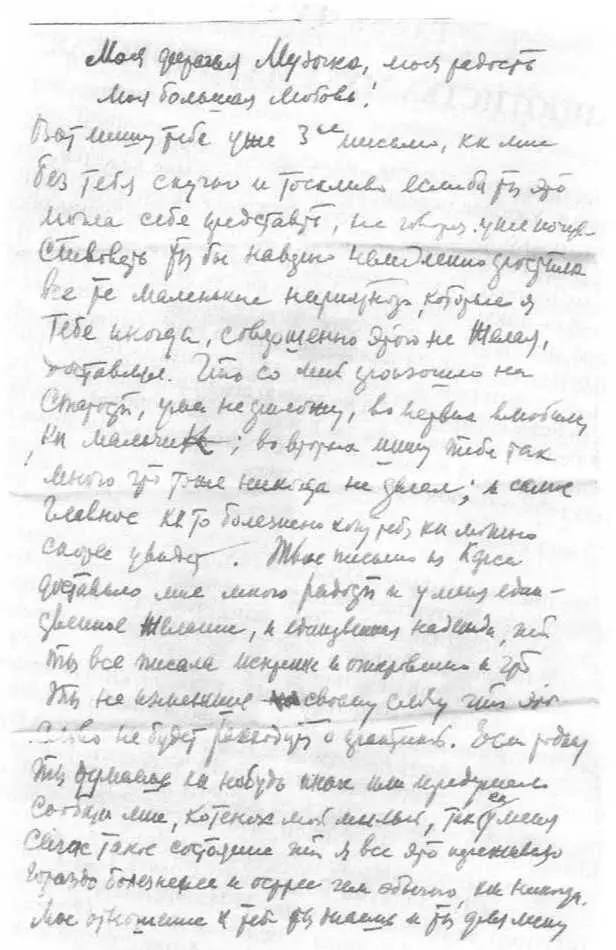 Моя дорогая Мубочка, моя радость
Моя большая любовь!
Вот пишу тебе уже 3ье письмо, как мне
без тебя скучно и тоскливо если бы ты это
могла себе представить, не говоря уже почув-
ствовать ты бы наверно немедленно простила
все те маленькие неприятности, которые я
Тебе иногда, совершенно этого не желая,
доставлял. Что со мной произошло на
старости, ума не приложу, во первых влюбился
как мальчик; во вторых пишу тебе так
много что тоже никогда не делал; и самое
главное как то болезненно хочу тебя как можно
скорее увидеть. Твое письмо из Карса
доставило мне много радости и у меня един-
ственное желание, и единственная надежда, что
ты все писала искренне и откровенно и что
Ты не изменишь своему слову что это
слово не будет расходиться с практикой. Если
Ты как нибудь иначе или передумала
сообщи мне, котенок мой милый, так как у меня
сейчас такое состояние что я все это переживаю
гораздо болезненнее и острее чем обычно, как никогда.
Мое отношение к тебе ты знаешь и ты для меня